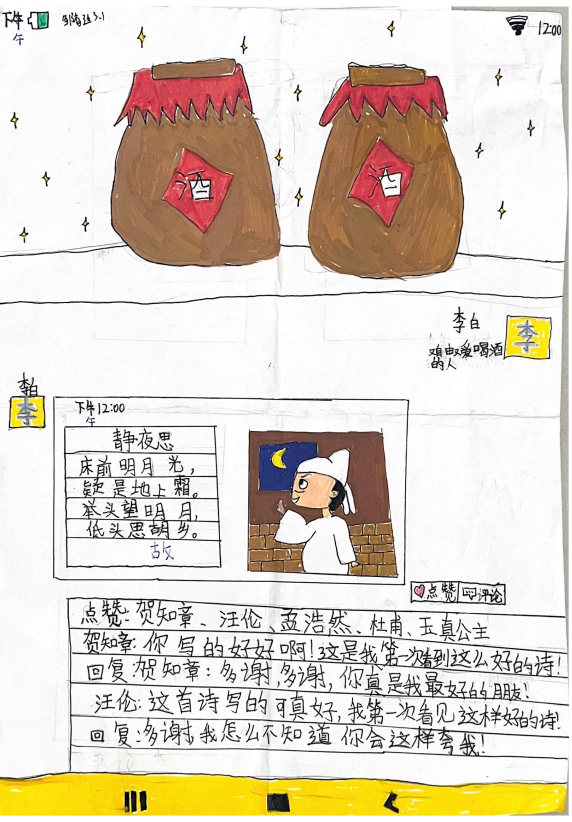 下牛
午
12:00
酒
酒
李白
李
爱喝酒
的人
李白
李
下牛12:00
午
静夜思
床前明月光，
疑是地上霜。
举头望明月，
低头思胡乡。
故
点赞 评论
点赞：贺知章、汪伦、孟浩然、杜甫、玉真公主
贺知章：你写的好好啊！这是我第一次看到这么好的诗！
回复：贺知章：多谢，多谢，你真是我最好的朋友！
汪伦：这首诗写的可真好，我第一次看见这样好的诗！
回复：多谢，我怎么不知道你会这样夸我！